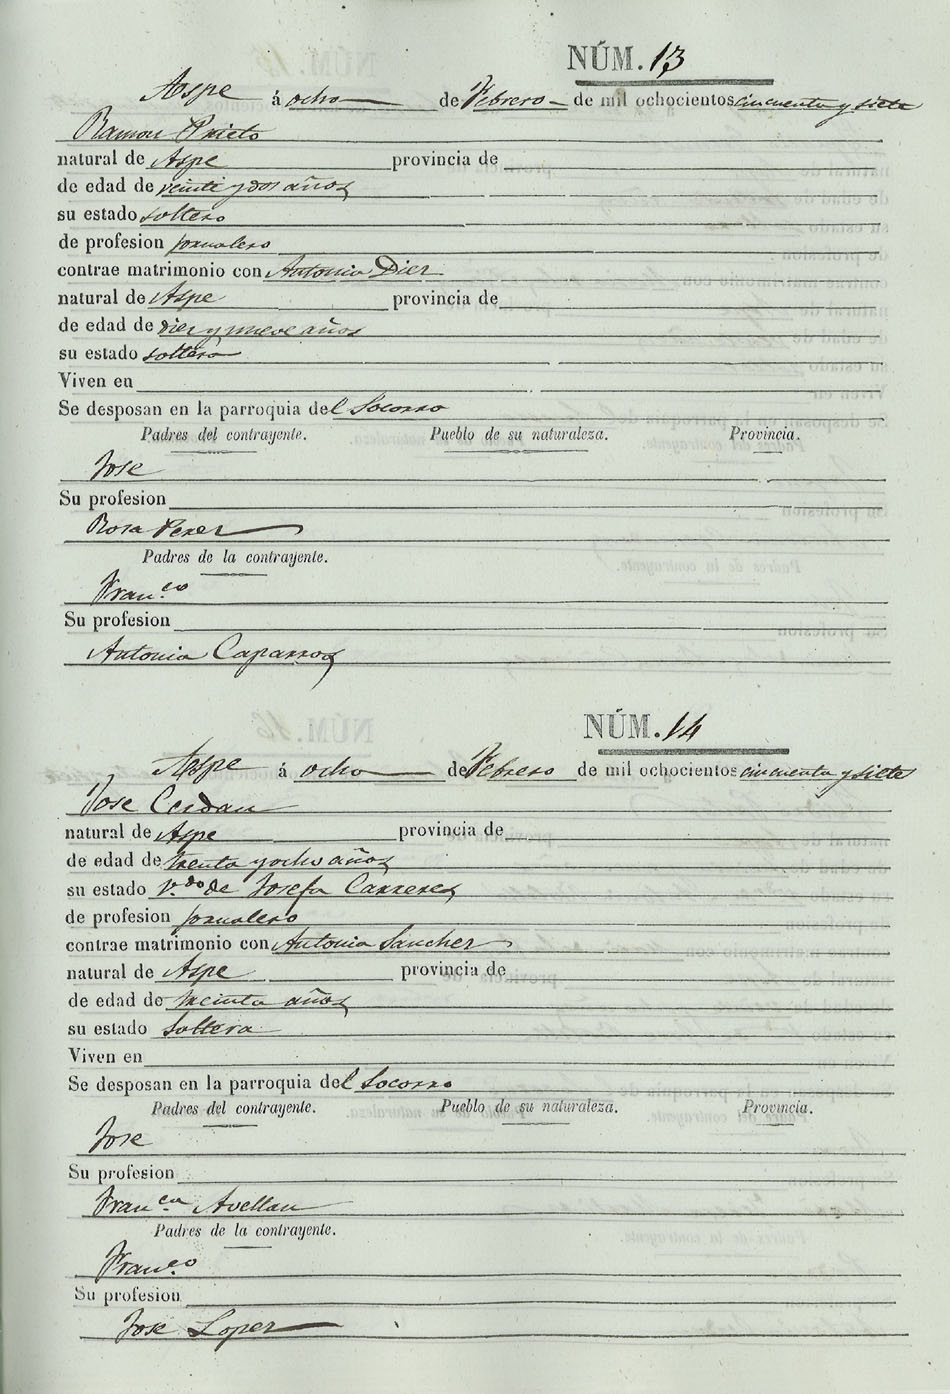 NÚM. 13
Aspe á ocho de Febrero de mil ochocientos cincuenta y siete
Ramon Prieto
natural de Aspe provincia de
de edad de veinte y dos años
su estado soltero
de profesion jornalero
contrae matrimonio con Antonia Diez
natural de Aspe provincia de
de edad de diez y nueve años
su estado soltera
Viven en
Se desposan en la parroquia del Socorro
Padres del contrayente. Pueblo de su naturaleza. Provincia.
Jose
Su profesion
Rosa Perez
Padres de la contrayente.
Fran.co
Su profesion
Antonia Caparros
NÚM. 14
Aspe á ocho de Febrero de mil ochocientos cincuenta y siete
Jose Cerdan
natural de Aspe provincia de
de edad de treinta y ocho años
su estado v.do de Josefa Carreres
de profesion jornalero
contrae matrimonio con Antonia Sanchez
natural de Aspe provincia de
de edad de treinta años
su estado Soltera
Viven en
Se desposan en la parroquia del Socorro
Padres del contrayente. Pueblo de su naturaleza. Provincia.
Jose
Su profesion
Fran.ca Avellan
Padres de la contrayente.
Fran.co
Su profesion
Jose Lopez